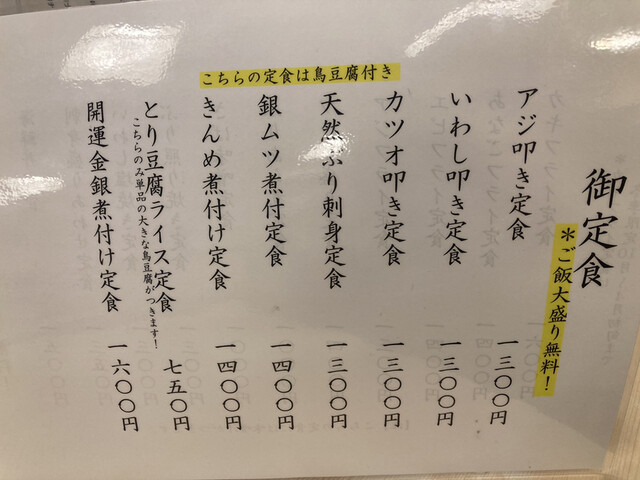 御定食
＊ご飯大盛り無料！
アジ叩き定食 一三〇〇円
いわし叩き定食 一三〇〇円
カツオ叩き定食 一三〇〇円
天然ぶり刺身定食 一三〇〇円
こちらの定食は鳥豆腐付き
銀ムツ煮付定食 一四〇〇円
きんめ煮付け定食 一四〇〇円
とり豆腐ライス定食 七五〇円
こちらのみ単品の大きな鳥豆腐がつきます！
開運金銀煮付け定食 一六〇〇円